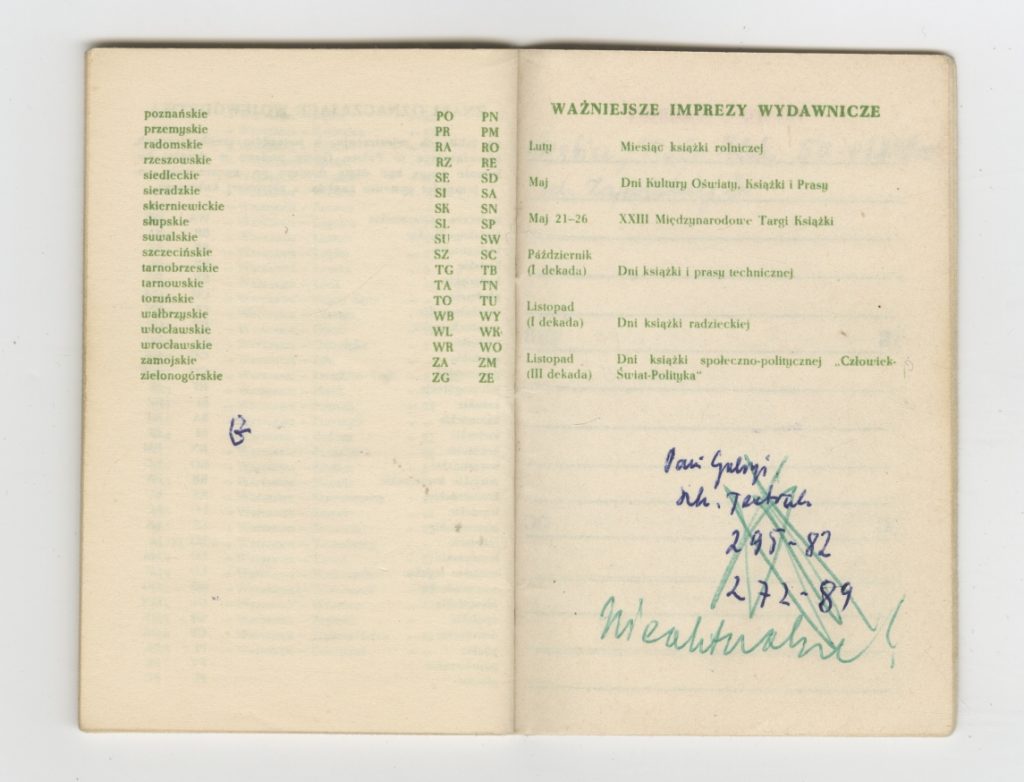 poznańskie PO PN
przemyskie PR PM
radomskie RA RO
rzeszowskie RZ RE
siedleckie SE SD
sieradzkie SI SA
skierniewickie SK SN
słupskie SL SP
suwalskie SU SW
szczecińskie SZ SC
tarnobrzeskie TG TB
tarnowskie TA TN
toruńskie TO TU
wałbrzyskie WB WY
włocławskie WL WK
wrocławskie WR WO
zamojskie ZA ZM
zielonogórskie ZG ZE
WAŻNIEJSZE IMPREZY WYDAWNICZE
Luty Miesiąc książki rolniczej
Maj Dni Kultury Oświaty, Książki i Prasy
Maj 21–26 XXIII Międzynarodowe Targi Książki
Październik
(I dekada) Dni książki i prasy technicznej
Listopad
(I dekada) Dni książki radzieckiej
Listopad Dni książki społeczno-politycznej „Człowiek-
(III dekada) Świat-Polityka“
295-82
272-89
Nieaktualne!